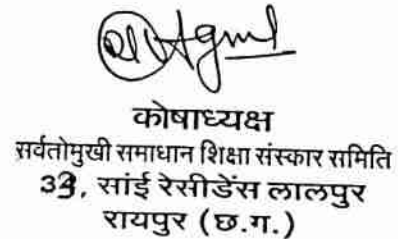 कोषाध्यक्ष
सर्वतोमुखी समाधान शिक्षा संस्कार समिति
सांई रेसीडेंस लालपुर
रायपुर (छ.ग.)